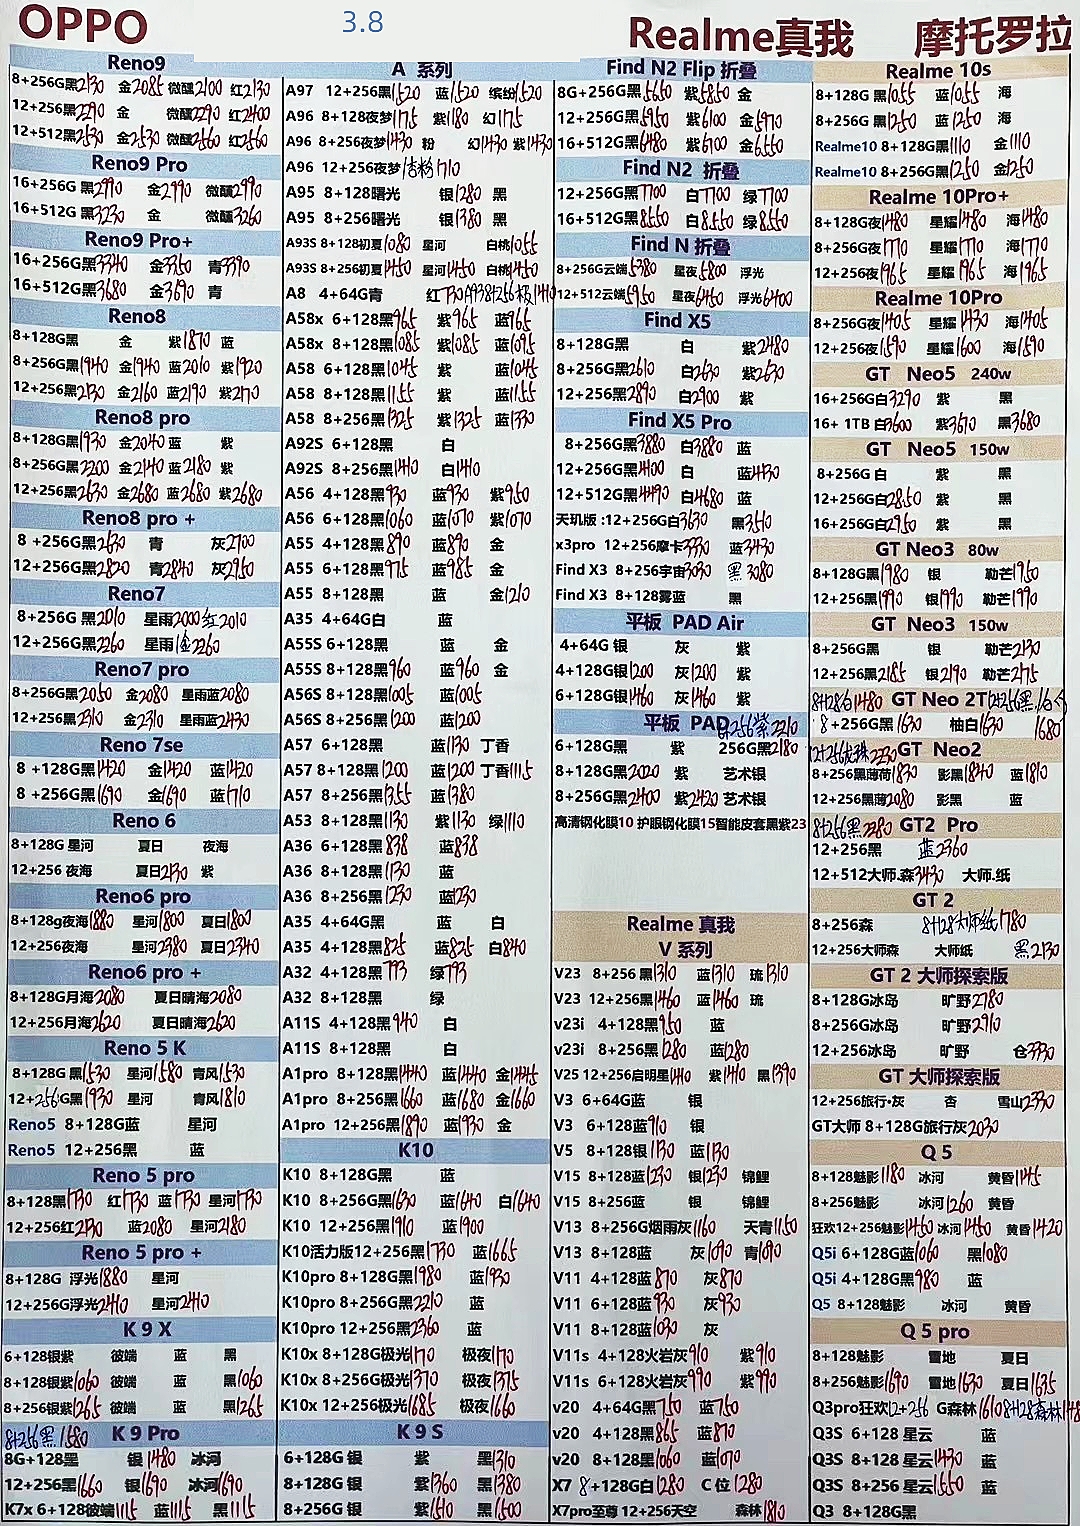 OPPO
3.8
Realme真我
摩托罗拉
Reno9
8+256G黑2130 金2085 微醺2100 红2130
12+256黑2290 金 微醺2290 红2400
12+512黑2530 金2530 微醺2560 红2560
Reno9 Pro
16+256G 黑2990 金2990 微醺2990
16+512G 黑3230 金 微醺3260
Reno9 Pro+
16+256G黑3340 金3350 青3390
16+512G黑3680 金3690 青
Reno8
8+128G黑 金 紫1870 蓝
8+256G黑1940 金1940 蓝2010 紫1920
12+256黑2130 金2160 蓝2190 紫2170
Reno8 pro
8+128G黑1930 金2040 蓝 紫
8+256G黑2200 金2140 蓝2180 紫
12+256黑2630 金2680 蓝2680 紫2680
Reno8 pro +
8 +256G黑2630 青 灰2700
12+256G黑2820 青2840 灰2950
Reno7
8+256G 黑2010 星雨2000 红2010
12+256G黑2260 星雨 金2260
Reno7 pro
8+256G黑2050 金2080 星雨蓝2080
12+256黑2310 金2310 星雨蓝2430
Reno 7se
8 +128G黑1420 金1420 蓝1420
8 +256G黑1690 金1690 蓝1710
Reno 6
8+128G 星河 夏日 夜海
12+256 夜海 夏日2130 紫
Reno6 pro
8+128g夜海1880 星河1800 夏日1800
12+256夜海 星河2380 夏日2340
Reno6 pro +
8+128G月海2080 夏日晴海2080
12+256月海2620 夏日晴海2620
Reno 5 K
8+128G 黑1530 星河1580 青风1530
12+256G黑1930 星河 青风1810
Reno5 8+128G蓝 星河
Reno5 12+256黑 蓝
Reno 5 pro
8+128黑1730 红1730 蓝1730 星河1730
12+256红2130 蓝2080 星河2180
Reno 5 pro +
8+128G 浮光1880 星河
12+256G浮光2410 星河2410
K 9 X
6+128银紫 彼端 蓝 黑
8+128银紫1060 彼端 蓝 黑1060
8+256银紫1265 彼端 蓝 黑1265
8+256黑1580 K 9 Pro
8G+128黑 银1480 冰河
12+256黑1660 银1690 冰河1690
K7x 6+128彼端1115 蓝1115 黑1115
A 系列
A97 12+256黑1520 蓝1520 缤纷1520
A96 8+128夜梦1175 紫1180 幻1175
A96 8+256夜梦1430 粉 幻1430 紫1430
A96 12+256夜梦 粉1710
A95 8+128曙光 银1280 黑
A95 8+256曙光 银1380 黑
A93S 8+128初夏1080 星河 白桃1055
A93S 8+256初夏1450 星河1450 白桃1450
A8 4+64G青 红730
A58x 6+128黑965 紫965 蓝965
A58x 8+128黑1085 紫1085 蓝1095
A58 6+128黑1045 紫 蓝1045
A58 8+128黑1155 紫 蓝1155
A58 8+256黑1325 紫1325 蓝1330
A92S 6+128黑 白
A92S 8+256黑1410 白1410
A56 4+128黑930 蓝930 紫950
A56 6+128黑1060 蓝1070 紫1070
A55 4+128黑890 蓝890 金
A55 6+128黑975 蓝985 金
A55 8+128黑 蓝 金1210
A35 4+64G白 蓝
A55S 6+128黑 蓝 金
A55S 8+128黑960 蓝960 金
A56S 8+128黑1005 蓝1005
A56S 8+256黑1200 蓝1200
A57 6+128黑 蓝1130 丁香
A57 8+128黑1200 蓝1200 丁香1115
A57 8+256黑1355 蓝1380
A53 8+128黑1130 紫1130 绿1110
A36 6+128黑838 蓝838
A36 8+128黑1130 蓝
A36 8+256黑1230 蓝1230
A35 4+64G黑 蓝 白
A35 4+128黑825 蓝825 白840
A32 4+128黑793 绿793
A32 8+128黑 绿
A11S 4+128黑940 白
A11S 8+128黑 白
A1pro 8+128黑1440 蓝1440 金1445
A1pro 8+256黑1660 蓝1680 金1660
A1pro 12+256黑1890 蓝1930 金
K10
K10 8+128G黑 蓝
K10 8+256G黑1630 蓝1640 白1640
K10 12+256黑1910 蓝1900
K10活力版12+256黑1730 蓝1665
K10pro 8+128G黑1980 蓝1930
K10pro 8+256G黑2210 蓝
K10pro 12+256黑2360 蓝
K10x 8+128G极光1170 极夜1170
K10x 8+256G极光1370 极夜1375
K10x 12+256极光1685 极夜1660
K 9 S
6+128G 银 紫 黑1310
8+128G 银 紫1360 黑1380
8+256G 银 紫1510 黑1500
Find N2 Flip 折叠
8G+256G黑5650 紫5850 金
12+256G黑5950 紫6100 金5970
16+512G黑6480 紫6100 金6550
Find N2 折叠
12+256G黑7700 白7700 绿7700
16+512G黑8550 白8550 绿8550
Find N 折叠
8+256G云端5380 星夜5800 浮光
12+512云端5950 星夜6450 浮光6400
Find X5
8+128G黑 白 紫2480
8+256G黑2610 白2630 紫2630
12+256黑2890 白2900 紫
Find X5 Pro
8+256G黑3880 白3880 蓝
12+256G黑4100 白 蓝4430
12+512G黑4490 白4680 蓝
天玑版 :12+256G白3630 黑3510
x3pro 12+256摩卡3330 蓝3430
Find X3 8+256宇宙3030 黑3080
Find X3 8+128雾蓝 黑
平板 PAD Air
4+64G 银 灰 紫
4+128G银1200 灰1200 紫
6+128G银1460 灰1460 紫
平板 PAD 8+256紫2210
6+128G黑 紫 256G黑2180
8+128G黑2020 紫 艺术银
8+256G黑2400 紫2420 艺术银
高清钢化膜10 护眼钢化膜15智能皮套黑紫23
Realme 真我
V 系列
V23 8+256 黑1310 蓝1310 琉1310
V23 12+256黑1460 蓝1460 琉
v23i 4+128黑950 蓝
v23i 8+256黑1280 蓝1280
V25 12+256启明星1410 紫1410 黑1390
V3 6+64G蓝 银
V3 6+128蓝910 银
V5 8+128银1130 蓝1130
V15 8+128蓝1230 银1230 锦鲤
V15 8+256蓝 银 锦鲤
V13 8+256G烟雨灰1160 天青1150
V13 8+128蓝 灰1090 青1090
V11 4+128蓝870 灰870
V11 6+128蓝930 灰930
V11 8+128蓝1030 灰
V11s 4+128火岩灰910 紫910
V11s 6+128火岩灰990 紫990
v20 4+64G黑750 蓝750
v20 4+128黑865 蓝870
v20 8+128黑1060 蓝1070
X7 8+128G白1280 C 位1280
X7pro至尊 12+256天空 森林1810
Realme 10s
8+128G 黑1055 蓝1055 海
8+256G 黑1250 蓝1250 海
Realme10 8+128G黑1110 金1110
Realme10 8+256G黑1250 金1250
Realme 10Pro+
8+128G夜1480 星耀1480 海1480
8+256G夜1770 星耀1770 海1770
12+256夜1965 星耀1965 海1965
Realme 10Pro
8+256G夜1405 星耀1430 海1405
12+256夜1590 星耀1600 海1590
GT Neo5 240w
16+256G白3290 紫 黑
16+ 1TB 白3600 紫3610 黑3680
GT Neo5 150w
8+256G 白 紫 黑
12+256G白2850 紫 黑
16+256G白2950 紫 黑
GT Neo3 80w
8+128G黑1980 银 勒芒1950
12+256黑1990 银1990 勒芒1990
GT Neo3 150w
8+256G黑 银 勒芒2130
12+256黑2185 银2190 勒芒2175
8+128白1480 GT Neo 2T
8 +256G黑1630 柚白1630 1680
2230 GT Neo2
8+256黑薄荷1830 影黑1840 蓝1810
12+256黑薄2080 影黑 蓝
8+256黑2280 GT2 Pro
12+256黑 蓝2360
12+512大师.森3430 大师.纸
GT 2
8+256森 8+128大师纸1780
12+256大师森 大师纸 黑2130
GT 2 大师探索版
8+128G冰岛 旷野2780
8+256G冰岛 旷野2910
12+256冰岛 旷野 仓3330
GT 大师探索版
12+256旅行·灰 杏 雪山2330
GT大师 8+128G旅行灰2030
Q 5
8+128魅影1180 冰河 黄昏1145
8+256魅影 冰河1260 黄昏
狂欢12+256魅影1450 冰河1450 黄昏1420
Q5i 6+128G蓝1060 黑1080
Q5i 4+128G黑980 蓝
Q5 8+128魅影 冰河 黄昏
Q 5 pro
8+128魅影 雪地 夏日
8+256魅影1690 雪地1630 夏日1635
Q3pro狂欢12+256 G森林1610 8+128森林148
Q3S 6+128 星云 蓝
Q3S 8+128 星云1430 蓝
Q3S 8+256 星云1550 蓝
Q3 8+128G黑